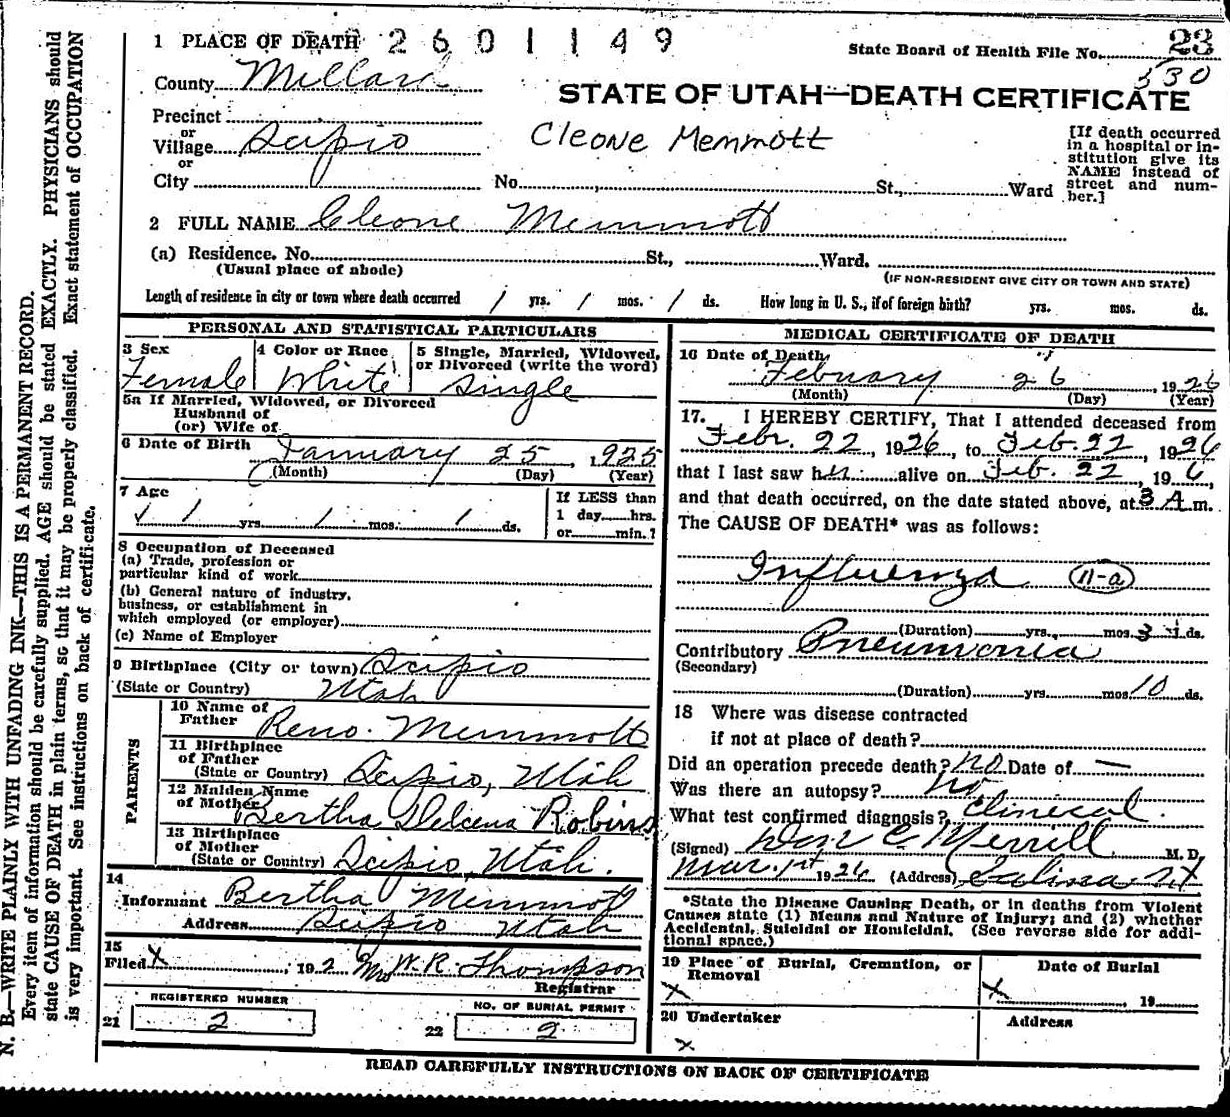 1 PLACE OF DEATH 2601149
State Board of Health File No. 23
530
County Millard
STATE OF UTAH—DEATH CERTIFICATE
Precinct
or
Village Scipio
or
City
Cleone Memmott
No. St., Ward
[If death occurred in a hospital or institution give its NAME instead of street and number.]
2 FULL NAME Cleone Memmott
(a) Residence. No. St., Ward.
(Usual place of abode)
(IF NON-RESIDENT GIVE CITY OR TOWN AND STATE)
Length of residence in city or town where death occurred 1 yrs. 1 mos. 1 ds. How long in U. S., if of foreign birth? yrs. mos. ds.
PERSONAL AND STATISTICAL PARTICULARS
3 Sex
Female
4 Color or Race
White
5 Single, Married, Widowed,
or Divorced (write the word)
Single
5a If Married, Widowed, or Divorced
Husband of
(or) Wife of
6 Date of Birth January 25, 1925
(Month) (Day) (Year)
7 Age
1 yrs. 1 mos. 1 ds.
If LESS than
1 day hrs.
or min.?
8 Occupation of Deceased
(a) Trade, profession or
particular kind of work
(b) General nature of industry,
business, or establishment in
which employed (or employer)
(c) Name of Employer
9 Birthplace (City or town) Scipio
(State or Country) Utah
PARENTS
10 Name of
Father Reno Memmott
11 Birthplace
of Father
(State or Country) Scipio, Utah
12 Maiden Name
of Mother
Bertha Delcena Robins
13 Birthplace
of Mother
(State or Country) Scipio, Utah.
14
Informant Bertha Memmott
Address Scipio Utah
15
Filed X, 192 W. R. Thompson
Registrar
REGISTERED NUMBER
21 2
NO. OF BURIAL PERMIT
22 2
MEDICAL CERTIFICATE OF DEATH
16 Date of Death
February 26, 1926
(Month) (Day) (Year)
17. I HEREBY CERTIFY, That I attended deceased from
Febr. 22, 1926, to Feb. 22, 1926
that I last saw her alive on Feb. 22, 196,
and that death occurred, on the date stated above, at 3 A m.
The CAUSE OF DEATH* was as follows:
Influenza 11-a
(Duration) yrs. mos. ds.
Contributory Pneumonia
(Secondary)
(Duration) yrs. mos 10 ds.
18 Where was disease contracted
if not at place of death?
Did an operation precede death? no Date of —
Was there an autopsy? no
What test confirmed diagnosis? Clinical.
(Signed) C. Merrill M. D.
Mar. 1st 1926 (Address) Salina Ut
*State the Disease Causing Death, or in deaths from Violent
Causes state (1) Means and Nature of Injury; and (2) whether
Accidental, Suicidal or Homicidal. (See reverse side for addi-
tional space.)
19 Place of Burial, Cremation, or
Removal
X
Date of Burial
X, 19
20 Undertaker
X
Address
READ CAREFULLY INSTRUCTIONS ON BACK OF CERTIFICATE
N. B.—WRITE PLAINLY WITH UNFADING INK—THIS IS A PERMANENT RECORD.
Every item of information should be carefully supplied. AGE should be stated EXACTLY. PHYSICIANS should
state CAUSE OF DEATH in plain terms, so that it may be properly classified. Exact statement of OCCUPATION
is very important. See instructions on back of certificate.